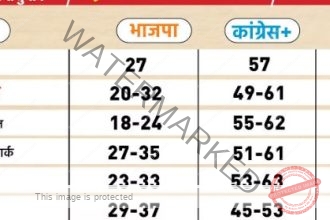 भाजपा कांग्रेस+
27 57
20-32 49-61
18-24 55-62
र्क 27-35 51-61
23-33 53-63
29-37 45-53
WATERMARKED
This image is protected